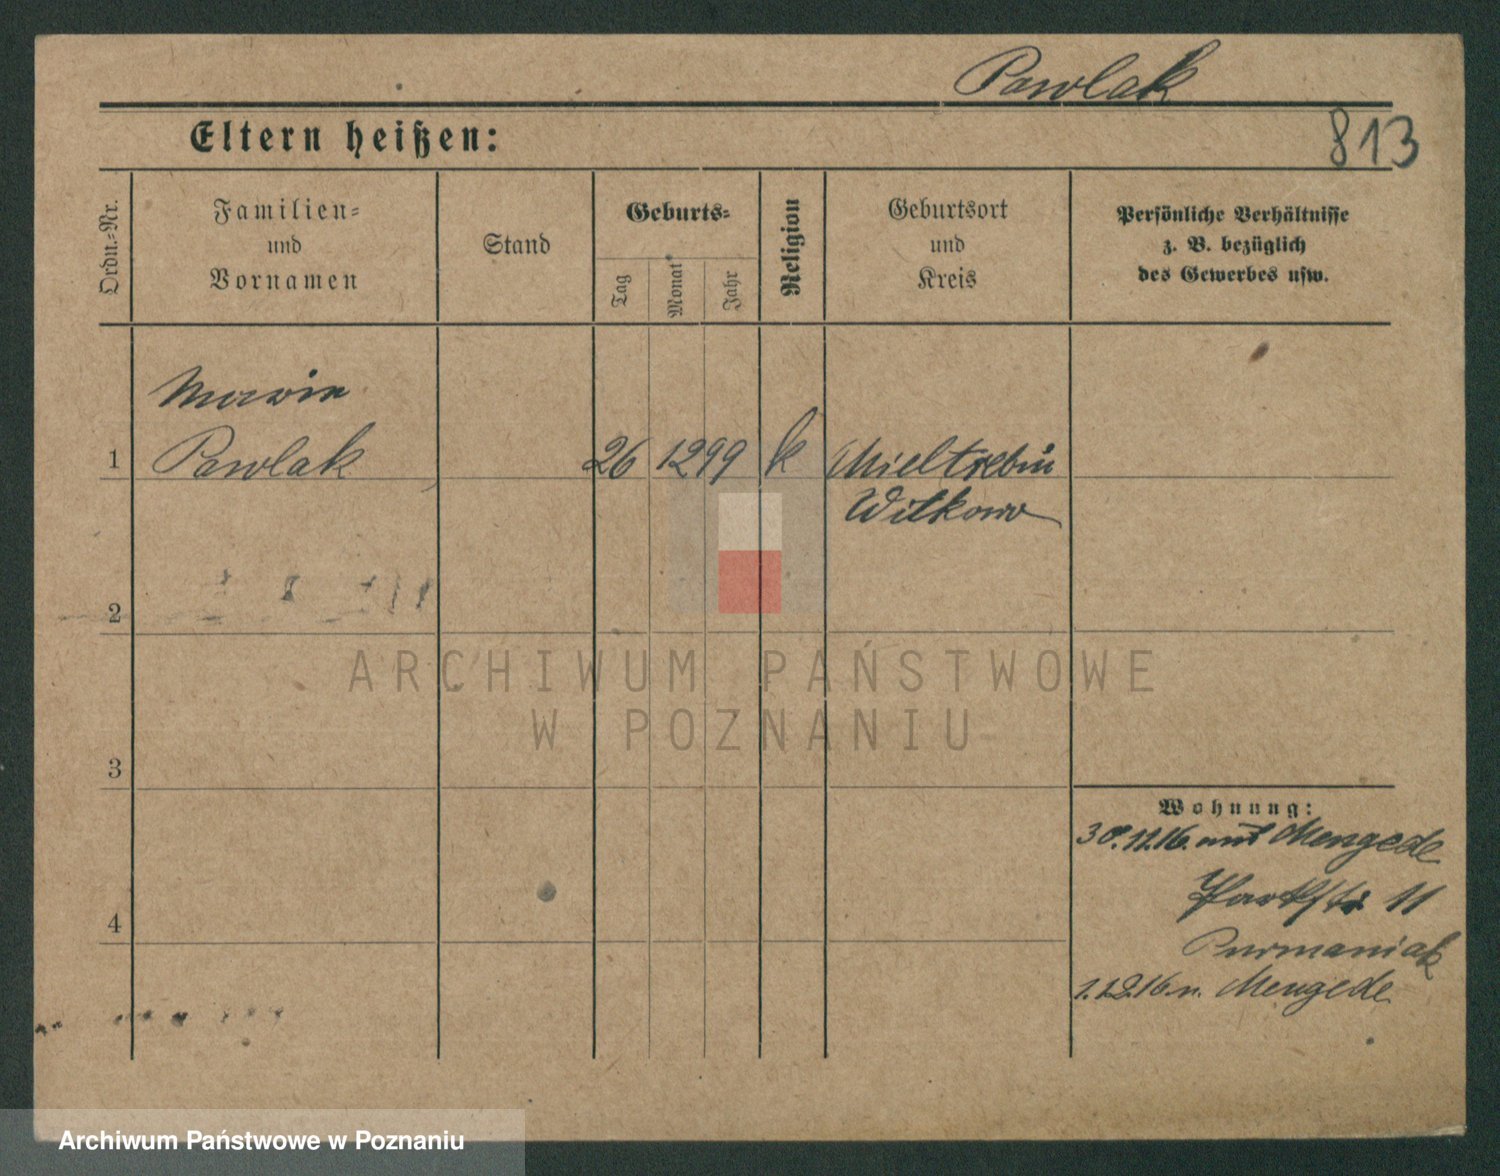 Pawlak
813
Eltern heißen:
Ordn.-Nr.
Familien-
und
Vornamen
Stand
Geburts-
Tag
Monat
Jahr
Religion
Geburtsort
und
Kreis
Persönliche Verhältnisse
z. B. bezüglich
des Gewerbes usw.
1
Pawlak
26 12 99 k
Witkowo
2
ARCHIWUM PAŃSTWOWE
W POZNANIU
3
Wohnung:
30.11.16. Mengede
11
4
1.12.16 n. Mengede
Archiwum Państwowe w Poznaniu